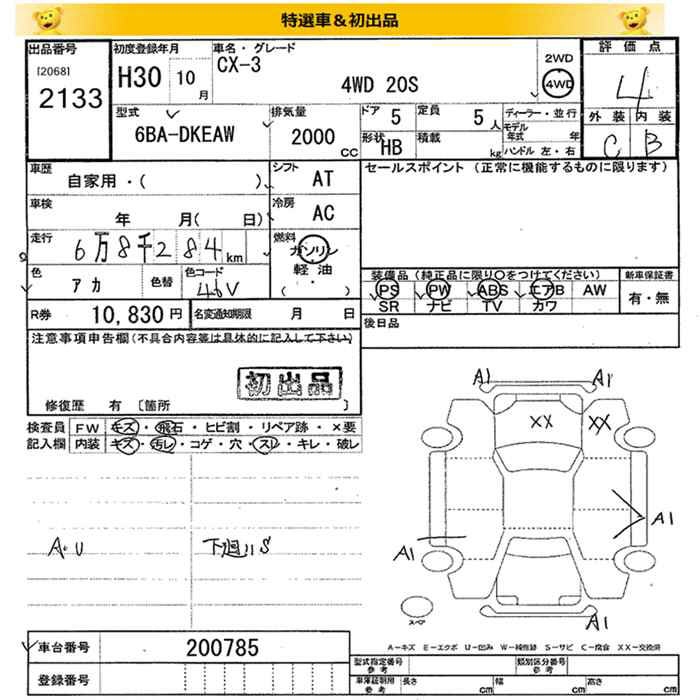 特選車＆初出品
出品番号 [2068] 2133
初度登録年月 H30 10月
車名・グレード CX-3 4WD 20S
2WD 4WD
評価点 4
外装 内装 C B
型式 6BA-DKEAW
排気量 2000 CC
ドア 5 定員 5人
形状 HB 積載 kg
ディーラー・並行
モデル年式 年
ハンドル 左・右
車歴 自家用・( )
シフト AT
セールスポイント (正常に機能するものに限ります)
車検 年 月( 日)
冷房 AC
走行 6万8千284km
燃料 ガソリン 軽油 ( ・ )
色 アカ 色替 色コード 46V
装備品(純正品に限り○をつけてください)
PS PW ABS エアB AW
SR ナビ TV カワ
新車保証書 有・無
R券 10,830円 名変通知期限 月 日
後日品
注意事項申告欄(不具合内容等は具体的に記入して下さい)
初出品
修復歴 有 [箇所 ]
検査員記入欄
FW キズ・飛石・ヒビ割・リペア跡・×要
内装 キズ・汚レ・コゲ・穴・スレ・キレ・破レ
A・U 下廻りS
A1 A1
XX XX
A1
A1
A1
スペア
A－キズ E－エクボ U－凹み W－補修跡 S－サビ C－腐食 XX－交換済
車台番号 200785
登録番号
型式指定番号 参考 類別区分番号 参考
車庫証明用 参考 長さ cm 幅 cm 高さ cm